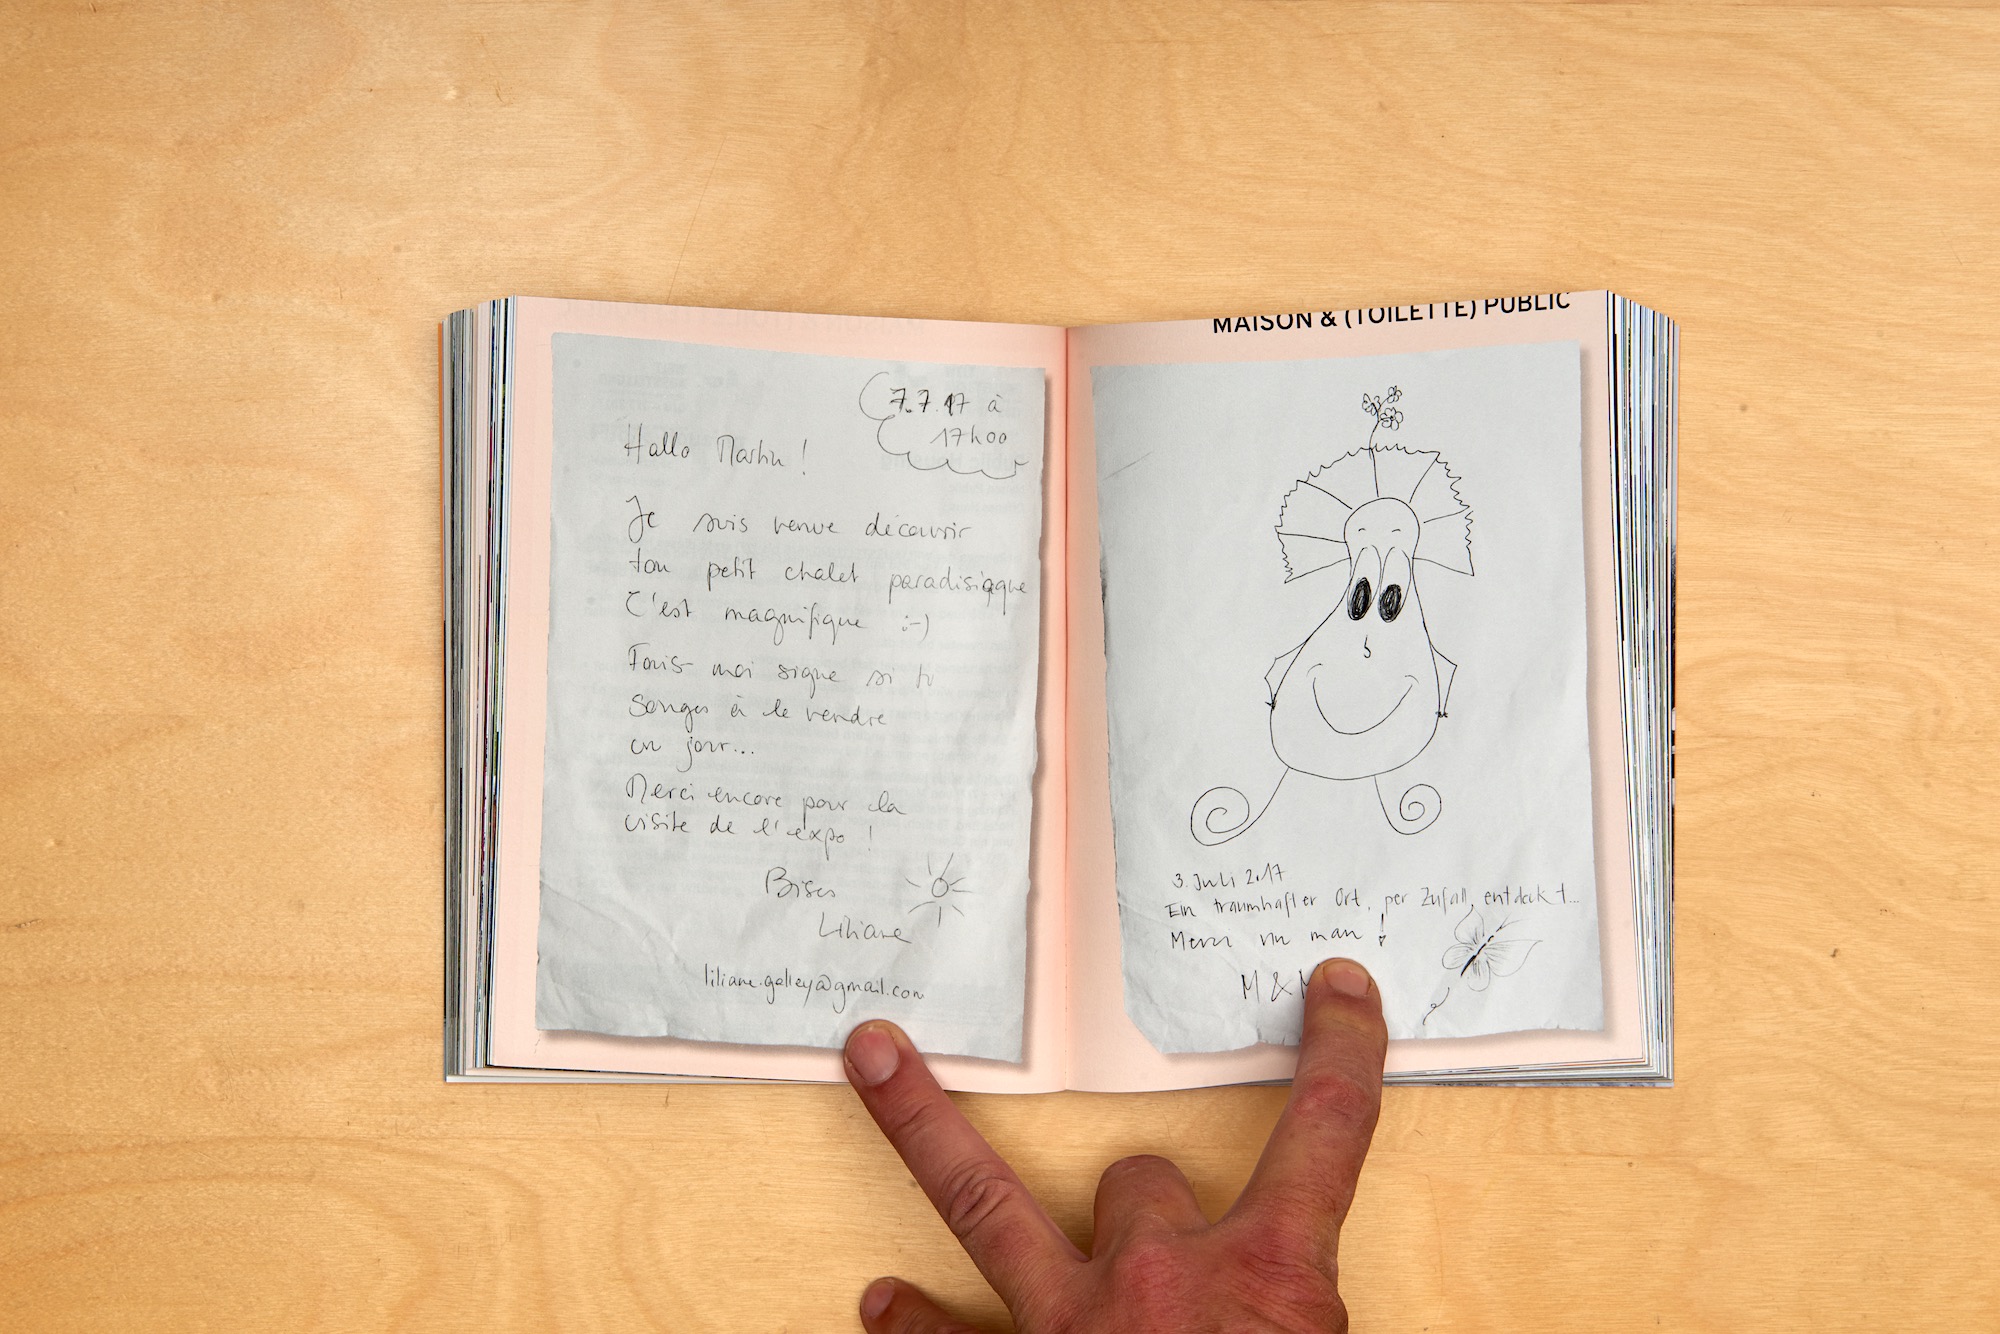 7.7.17 à
17h00
Hallo Martin !
Je suis venue découvrir
ton petit chalet paradisiaque
C'est magnifique :-)
Fais-moi signe si tu
songes à le vendre
un jour...
Merci encore pour la
visite de l'expo !
Bises
Liliane
liliane.galley@gmail.com
MAISON & (TOILETTE) PUBLIC
3. Juli 2017
Ein traumhafter Ort, per Zufall entdeckt...
Merci
M &